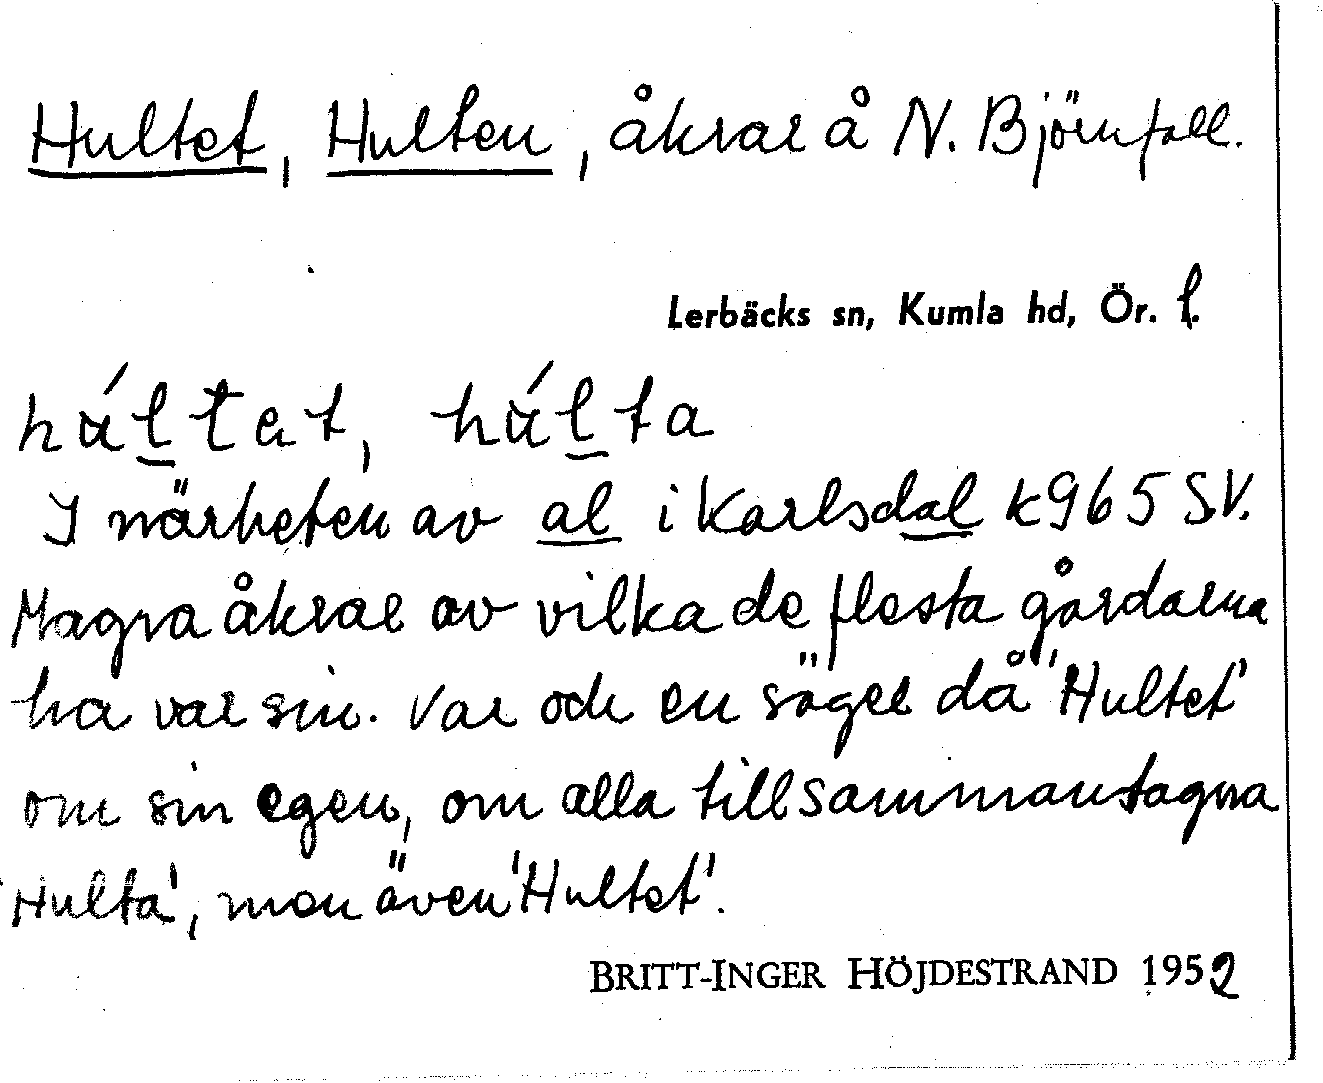 Hultet, Hulten, åkrar å N. Björnfall.
Lerbäcks sn, Kumla hd, Ör. l.
húltet, húlta
I närheten av al i Karlsdal k965 SV.
Magra åkrar av vilka de flesta gårdarna
ha var sin. Var och en säger då 'Hultet'
om sin egen, om alla tillsammantagna
'Hulta', men även 'Hultet'.
BRITT-INGER HÖJDESTRAND 1952